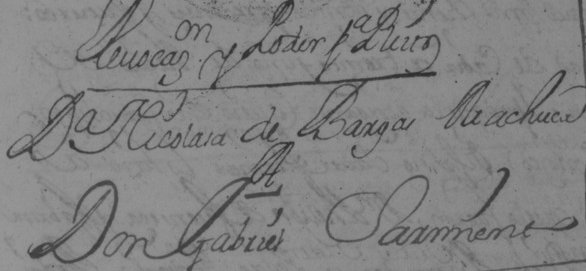 Revocaon y Poder pa Pleitos
Da Nicolasa de Bargas Machuca
A
Don Gabriel Sarmiento